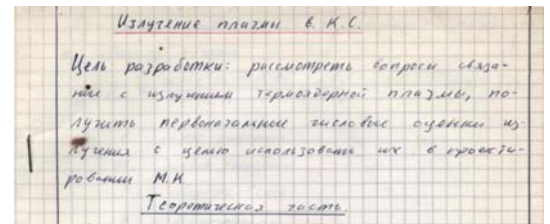 Излучение плазмы в. К.С.
Цель разработки: рассмотреть вопросы связа-
ные с излучением термоядерной плазмы, по-
лучить первоначальные числовые оценки из-
лучения с целью использовать их в проекти-
ровании М.К
Теоретическая часть.